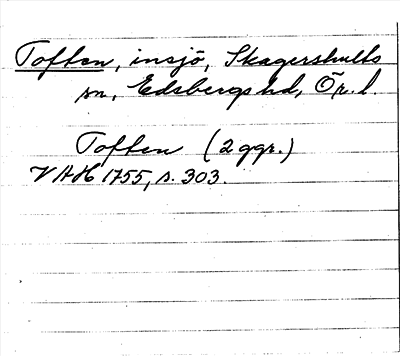 Toften, insjö, Skagershults
sn, Edsbergs hd, Ör. l.
Toften (2 ggr.)
VAH 1755, s. 303.